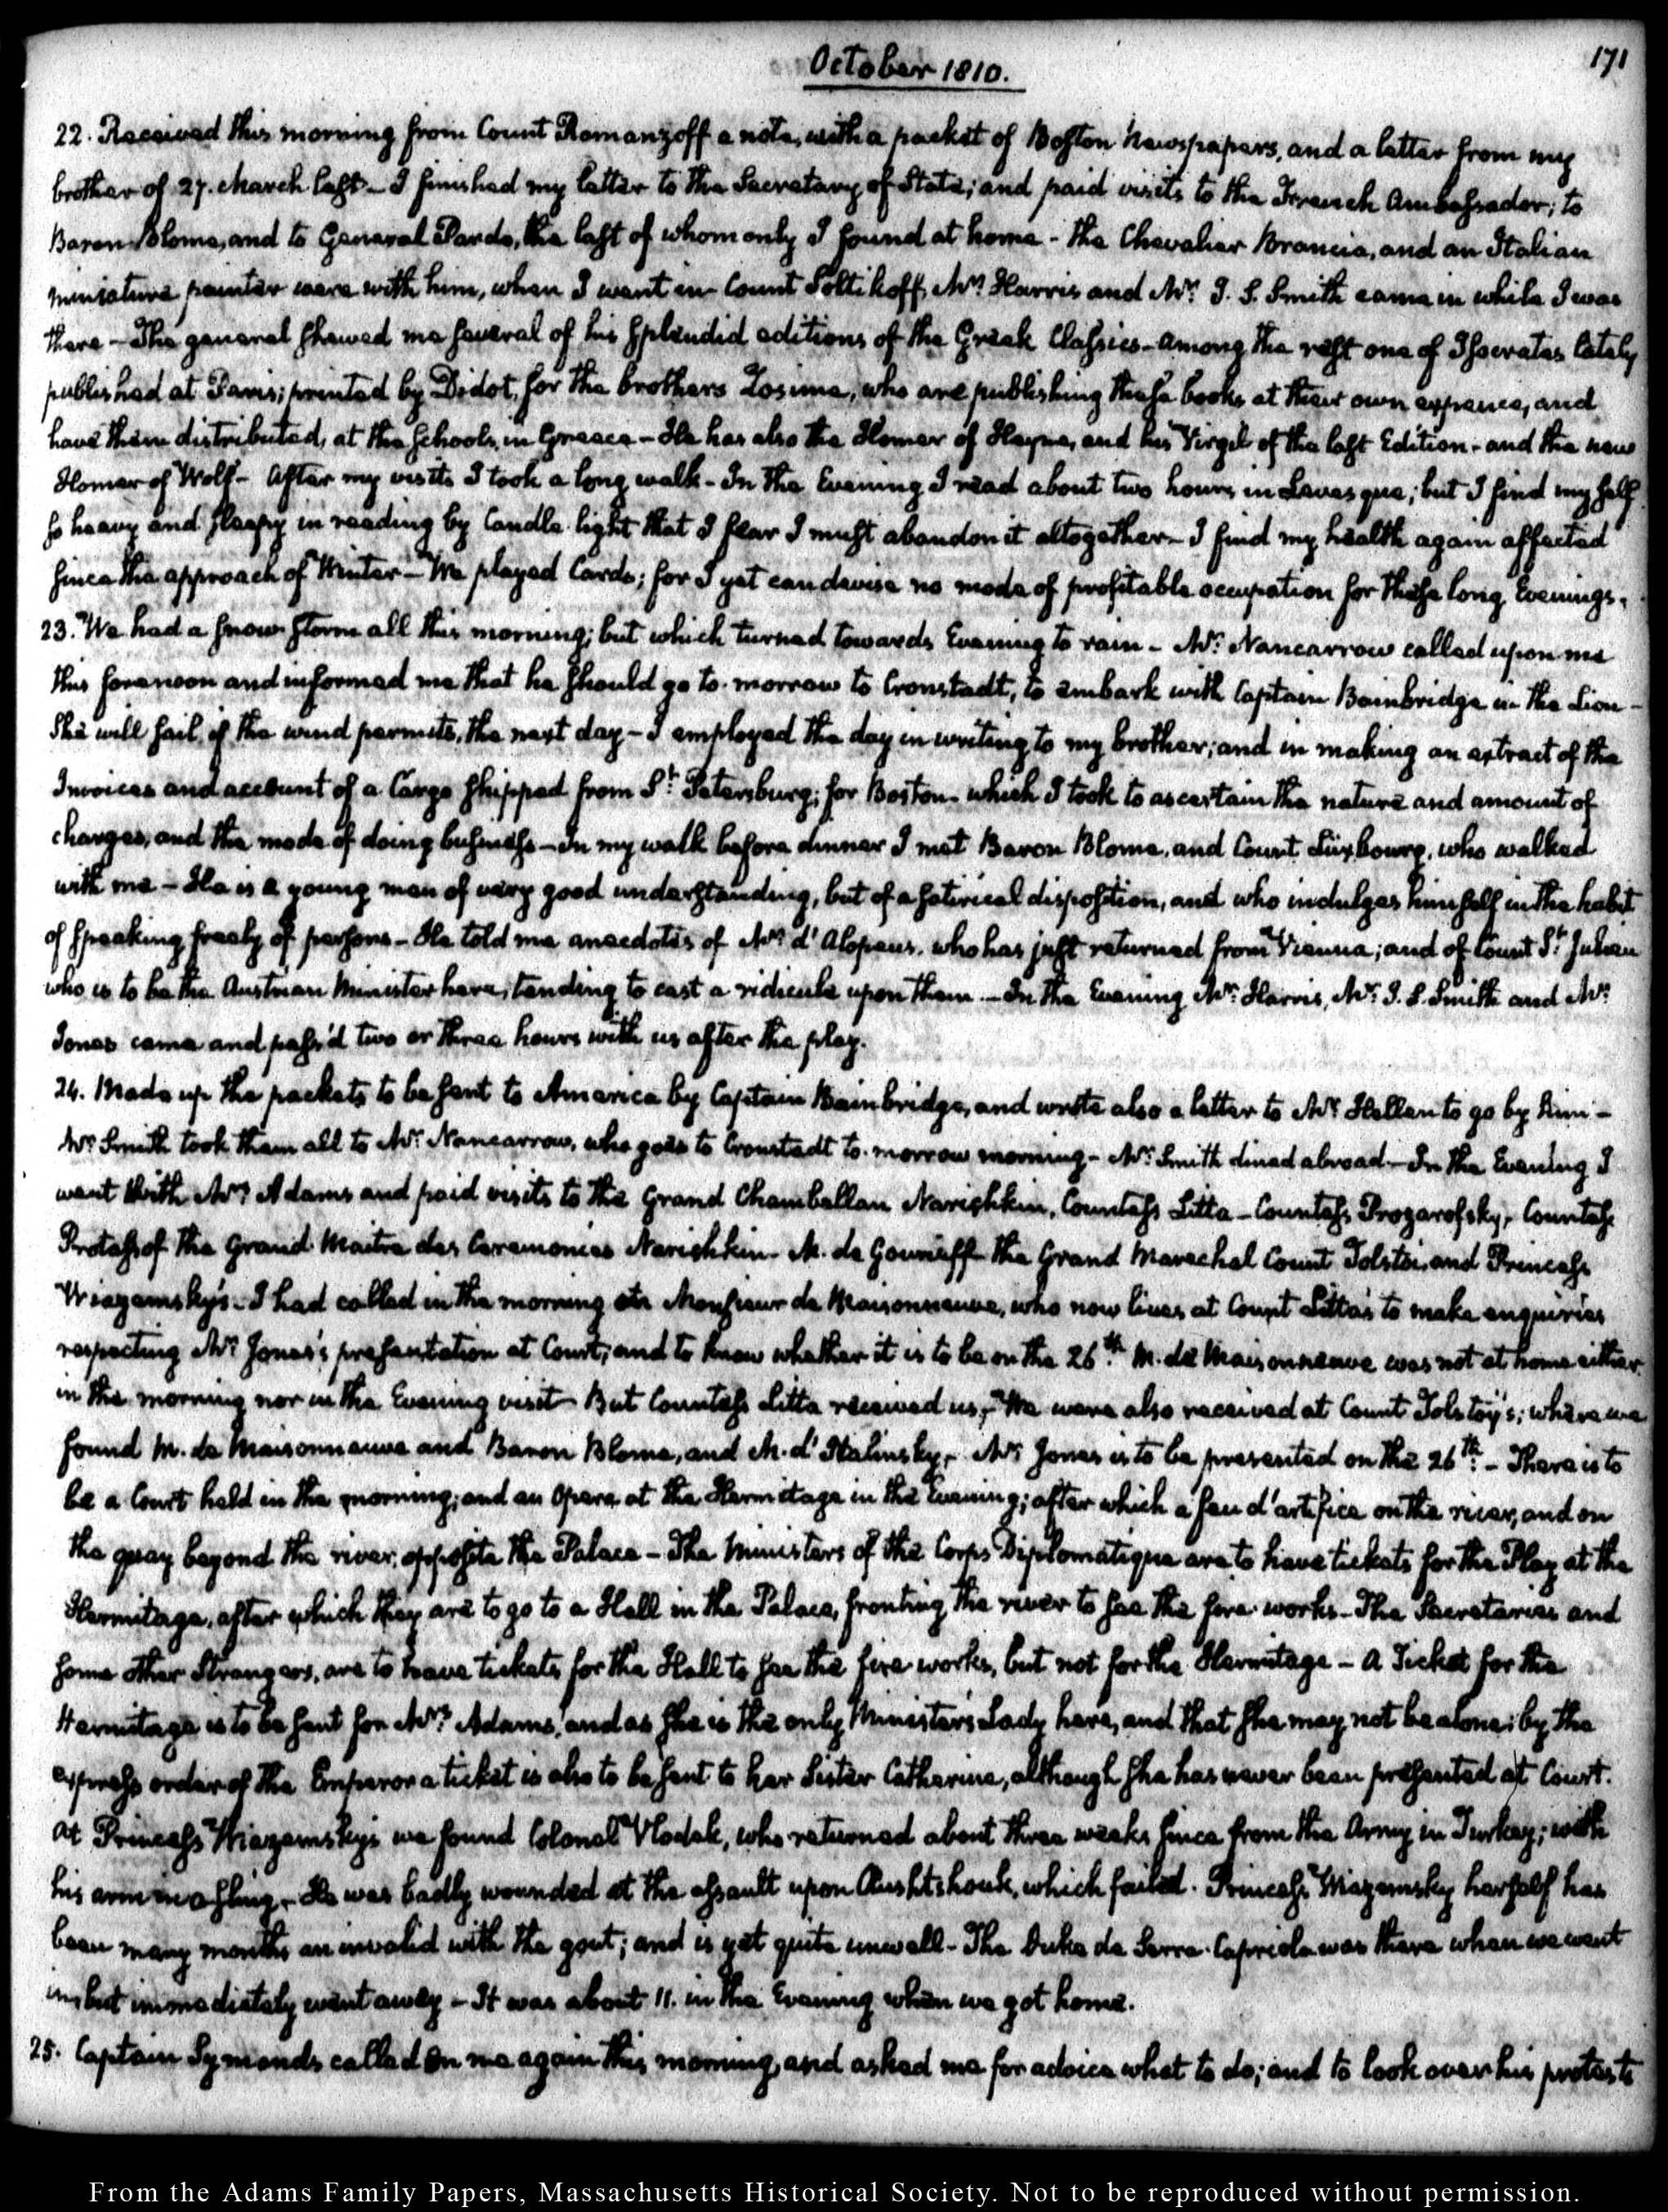 October 1810.
171
22. Received this morning from Count Romanzoff a note, with a packet of Boston Newspapers, and a letter from my
brother of 27. March last — I finished my letter to the Secretary of State; and paid visits to the French Ambassador; to
Baron Blome, and to General Pardo, the last of whom only I found at home — The Chevalier Brancia, and an Italian
miniature painter were with him, when I went in — Count Soltikoff, Mr. Harris and Mr. J. S. Smith came in while I was
there — The general shewed me several of his splendid editions of the Greek Classics — among the rest one of Isocrates lately
published at Paris; printed by Didot, for the brothers Zosima, who are publishing these books at their own expence, and
have them distributed, at the schools, in Greece — He has also the Homer of Heyne, and his Virgil of the last Edition — and the new
Homer of Wolf — After my visits I took a long walk — In the Evening I read about two hours in Levesque; but I find my self
so heavy and sleepy in reading by Candle light that I fear I must abandon it altogether — I find my health again affected
since the approach of Winter — We played Cards; for I yet can devise no mode of profitable occupation for these long Evenings.
23. We had a snow storm all this morning; but which turned towards Evening to rain — Mr. Nancarrow called upon me
this forenoon and informed me that he should go to-morrow to Cronstadt, to embark with Captain Bainbridge in the Lion —
She will sail, if the wind permits, the next day — I employed the day in writing to my brother; and in making an extract of the
Invoices and account of a Cargo shipped from St. Petersburg; for Boston — which I took to ascertain the nature and amount of
charges, and the mode of doing business — In my walk before dinner I met Baron Blome, and Count Luxbourg, who walked
with me — He is a young man of very good understanding, but of a satirical disposition, and who indulges himself in the habit
of speaking freely of persons — He told me anecdotes of Mr. d'Alopeus, who has just returned from Vienna; and of Count St. Julien
who is to be the Austrian Minister here, tending to cast a ridicule upon them — In the Evening Mr. Harris, Mr. J. S. Smith and Mr.
Jones came and pass'd two or three hours with us after the play.
24. Made up the packets to be sent to America by Captain Bainbridge, and wrote also a letter to Mr. Hellen to go by him —
Mr. Smith took them all to Mr. Nancarrow, who goes to Cronstadt to-morrow morning — Mr. Smith dined abroad — In the Evening I
went with Mrs. Adams and paid visits to the Grand Chambellan Narishkin, Countess Litta — Countess Prozarofsky, Countess
Protassof the Grand Maitre des Ceremonies Narishkin — M. de Gourieff — the Grand Marechal Count Tolstoi, and Princess
Wiazemsky's — I had called in the morning on Monsieur de Maisonneuve, who now lives at Count Litta's to make enquiries
respecting Mr. Jones's presentation at Court; and to know whether it is to be on the 26th. M. de Maisonneuve was not at home either
in the morning nor in the Evening visit — But Countess Litta received us, — We were also received at Count Tolstoy's; where we
found M. de Maisonneuve and Baron Blome, and M. d'Italinsky, Mr. Jones is to be presented on the 26th. — There is to
be a Court held in the morning; and an Opera at the Hermitage in the Evening; after which a feu d'artifice on the river, and on
the quay beyond the river, opposite the Palace — The Ministers of the Corps Diplomatique are to have tickets for the Play at the
Hermitage, after which they are to go to a Hall in the Palace, fronting the river to see the fire-works — The Secretaries and
some other Strangers, are to have tickets for the Hall to see the fire works, but not for the Hermitage — A Ticket for the
Hermitage is to be sent for Mrs. Adams, and as she is the only Minister's Lady here, and that she may not be alone; by the
express order of the Emperor a ticket is also to be sent to her Sister Catherine, although she has never been presented at Court.
At Princess Wiazemsky's we found Colonel Vlodek, who returned about three weeks since from the Army in Turkey; with
his arm in a sling — He was badly wounded at the assault upon Rushtshouk, which failed. Princess Wiazemsky herself has
been many months an invalid with the gout; and is yet quite unwell — The Duke de Serra-Capriola was there when we went
in, but immediately went away — It was about 11. in the Evening when we got home.
25. Captain Symonds called on me again this morning, and asked me for advice what to do; and to look over his protests
From the Adams Family Papers, Massachusetts Historical Society. Not to be reproduced without permission.